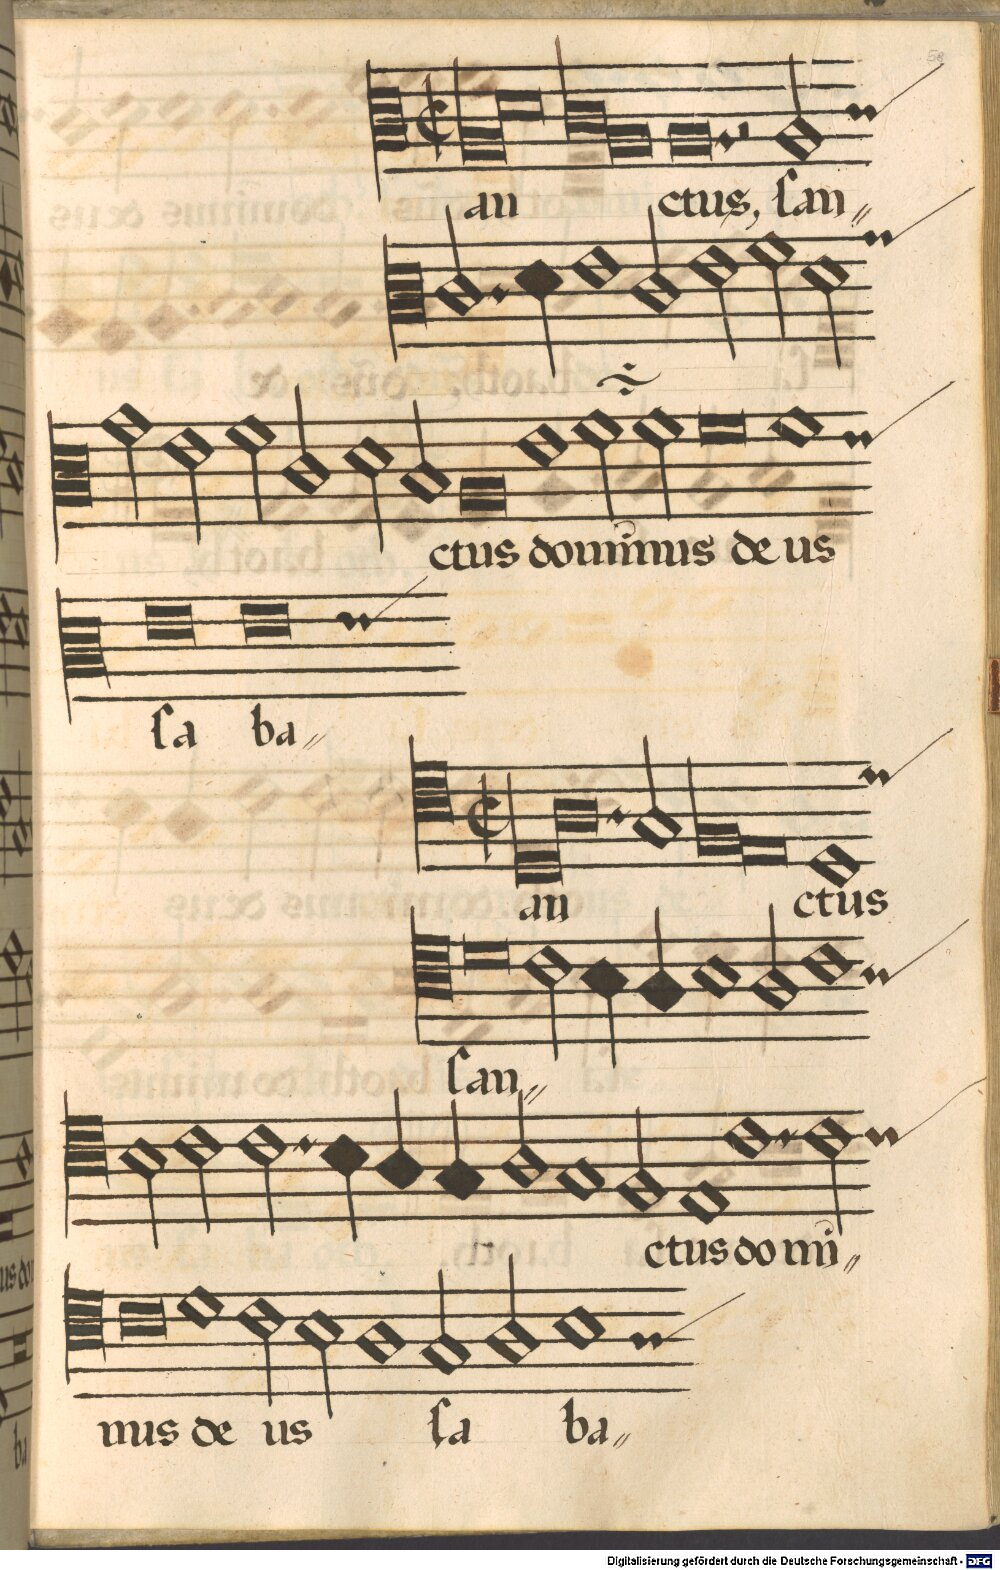 58
an ctus, san〃
ctus dominus de us
sa ba〃
an ctus
san〃
ctus do mi〃
nus de us sa ba〃
Digitalisierung gefördert durch die Deutsche Forschungsgemeinschaft - DFG